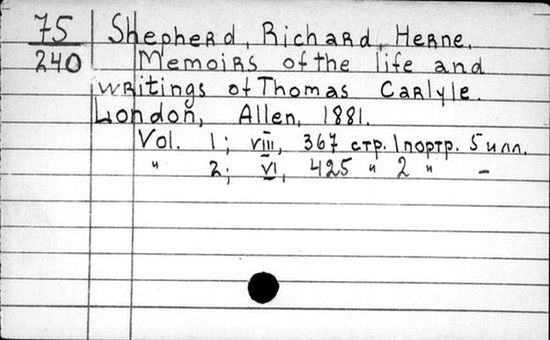 75 Shepherd, Richard, Herne.
240 Memoirs of the life and
writings of Thomas Carlyle.
London, Allen, 1881.
Vol. 1; viii, 367 стр. 1 портр. 5 илл.
" 2; VI, 425 " 2 " -